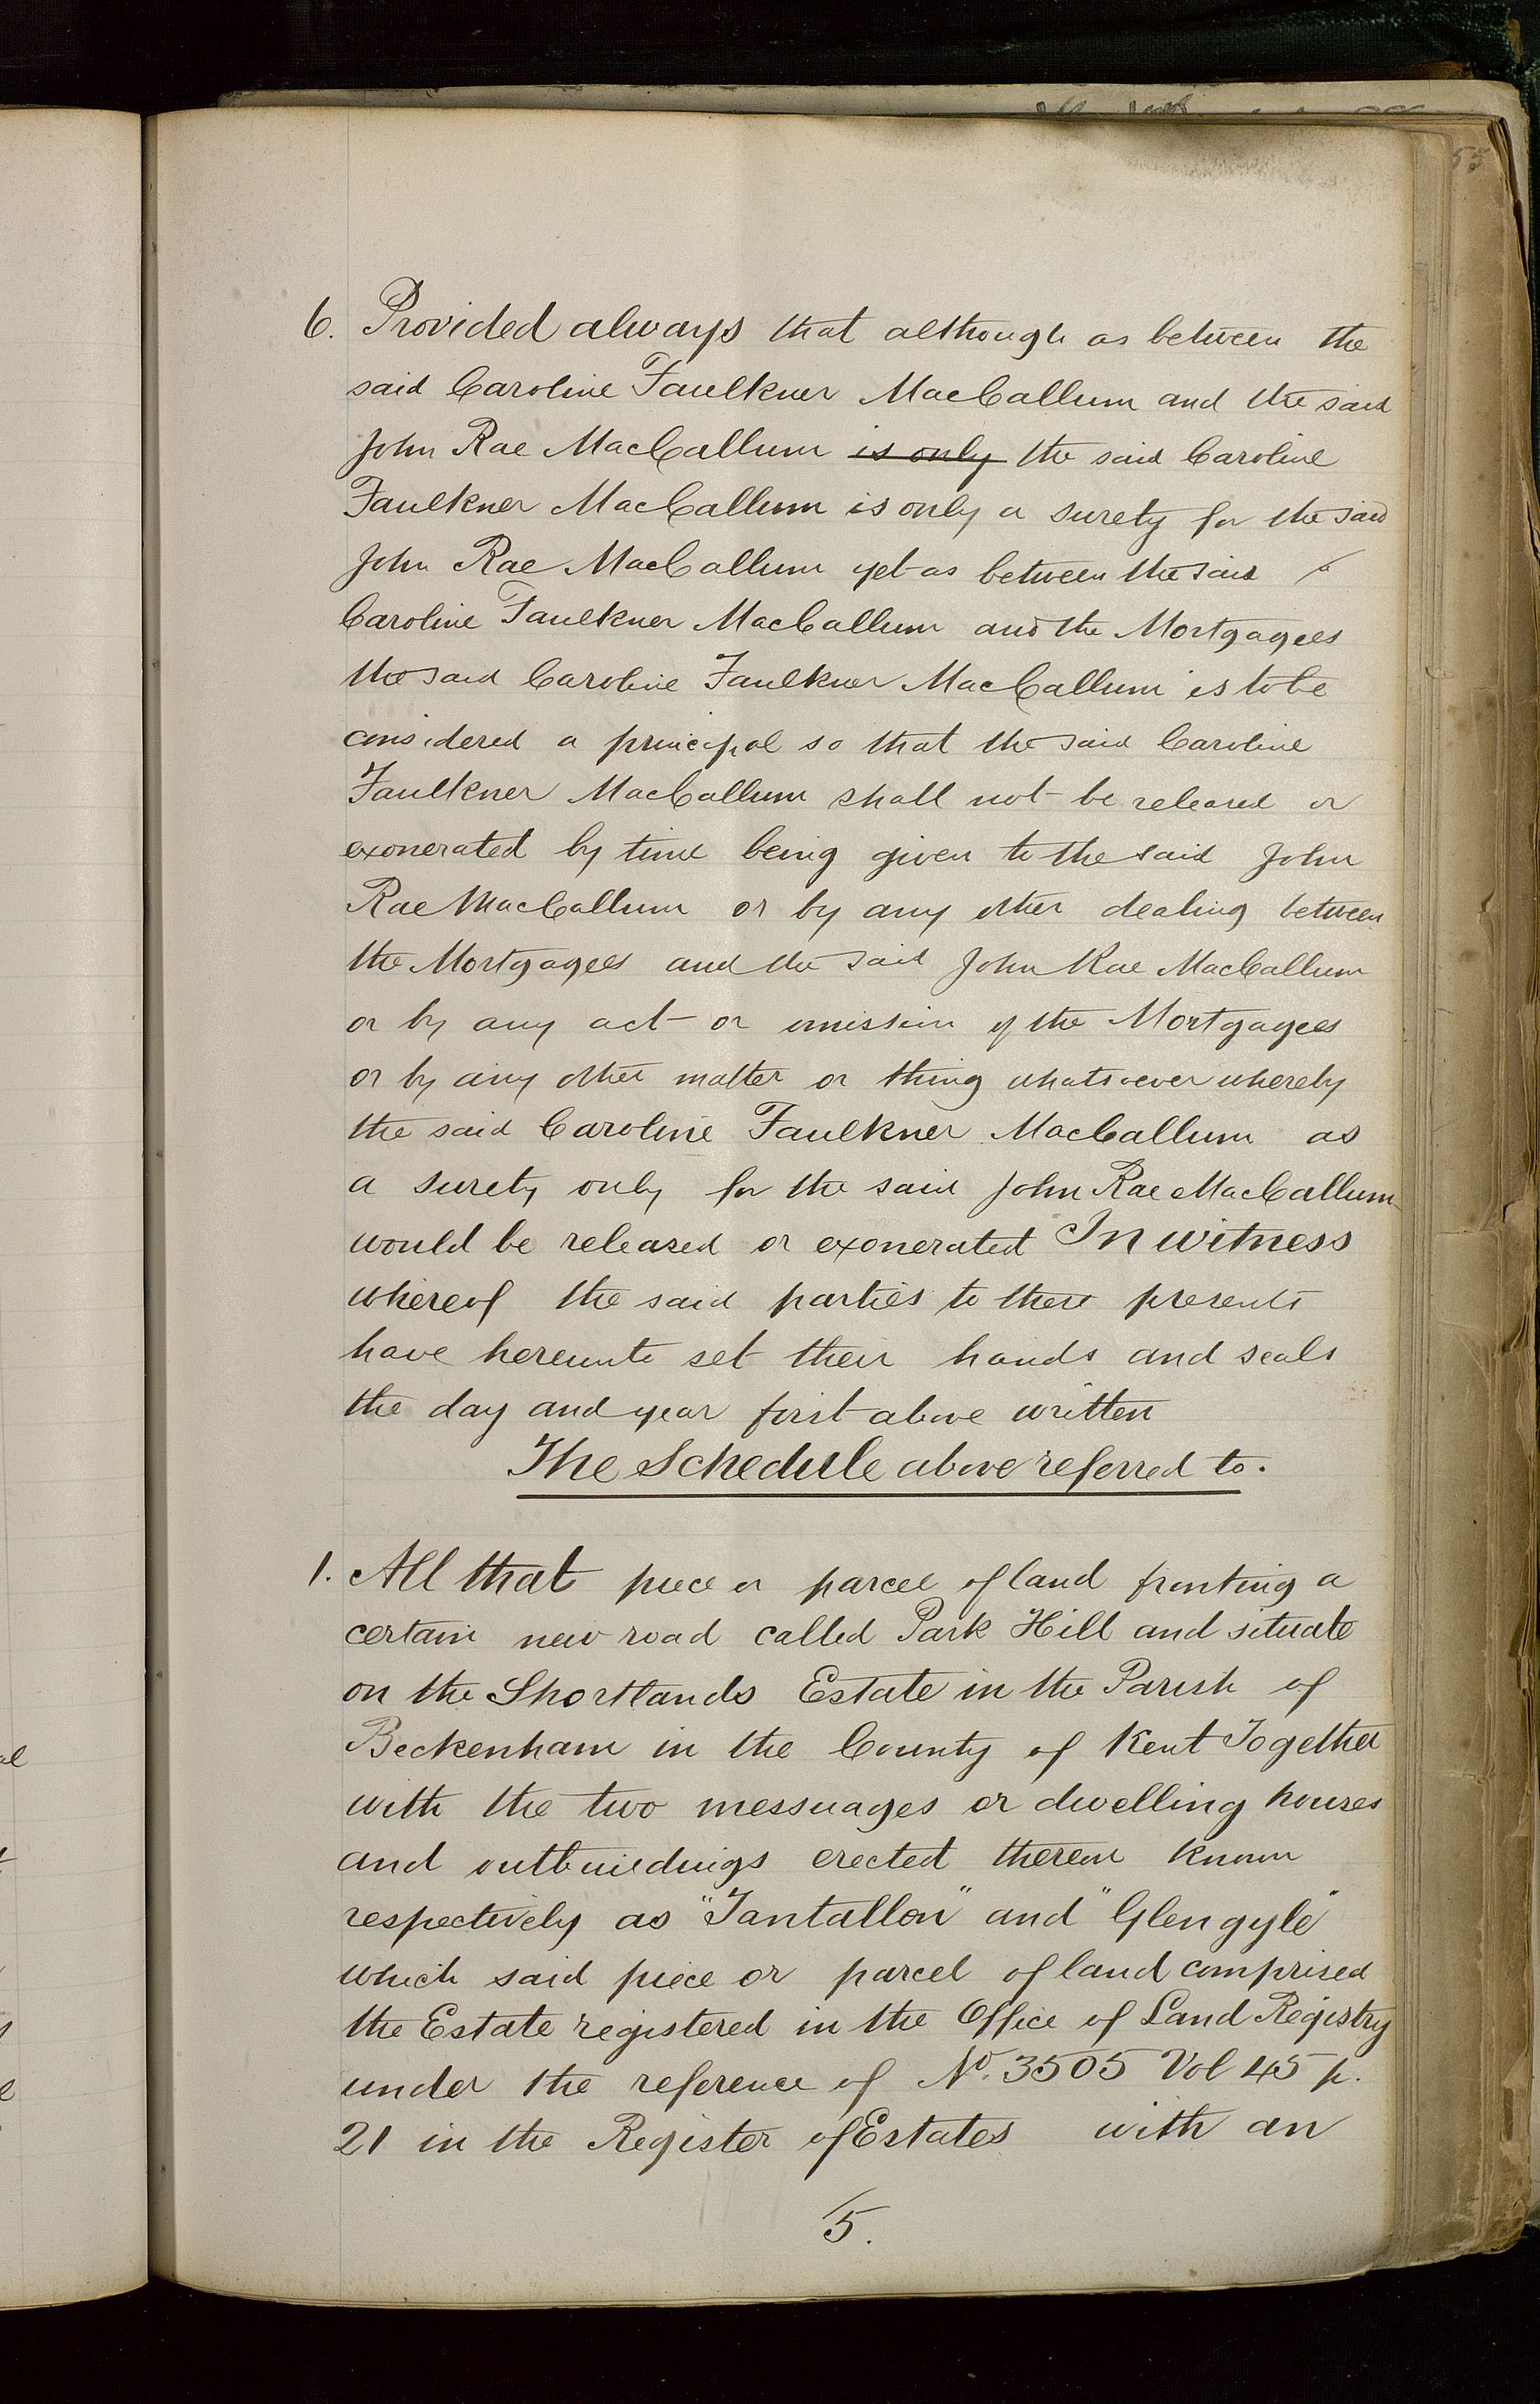 6. Provided always that although as between the
said Caroline Faulkner MacCallum and the said
John Rae MacCallum is only the said Caroline
Faulkner MacCallum is only a surety for the said
John Rae MacCallum yet as between the said
Caroline Faulkner MacCallum and the Mortgagees
the said Caroline Faulkner MacCallum is to be
considered a principal so that the said Caroline
Faulkner MacCallum shall not be released or
exonerated by time being given to the said John
Rae MacCallum or by any other dealing between
the Mortgagees and the said John Rae MacCallum
or by any act or omission of the Mortgagees
or by any other matter or thing whatsoever whereby
the said Caroline Faulkner MacCallum as
a surety only for the said John Rae MacCallum
would be released or exonerated In witness
whereof the said parties to these presents
have hereunto set their hands and seals
the day and year first above written
The Schedule above referred to.
1. All that piece or parcel of land fronting a
certain new road called Park Hill and situate
on the Shortlands Estate in the Parish of
Beckenham in the County of Kent Together
with the two messuages or dwelling houses
and outbuildings erected thereon known
respectively as "Tantallon" and "Glengyle"
which said piece or parcel of land comprised
the Estate registered in the Office of Land Registry
under the reference of No. 3505 Vol 45 p.
21 in the Register of Estates with an
5.